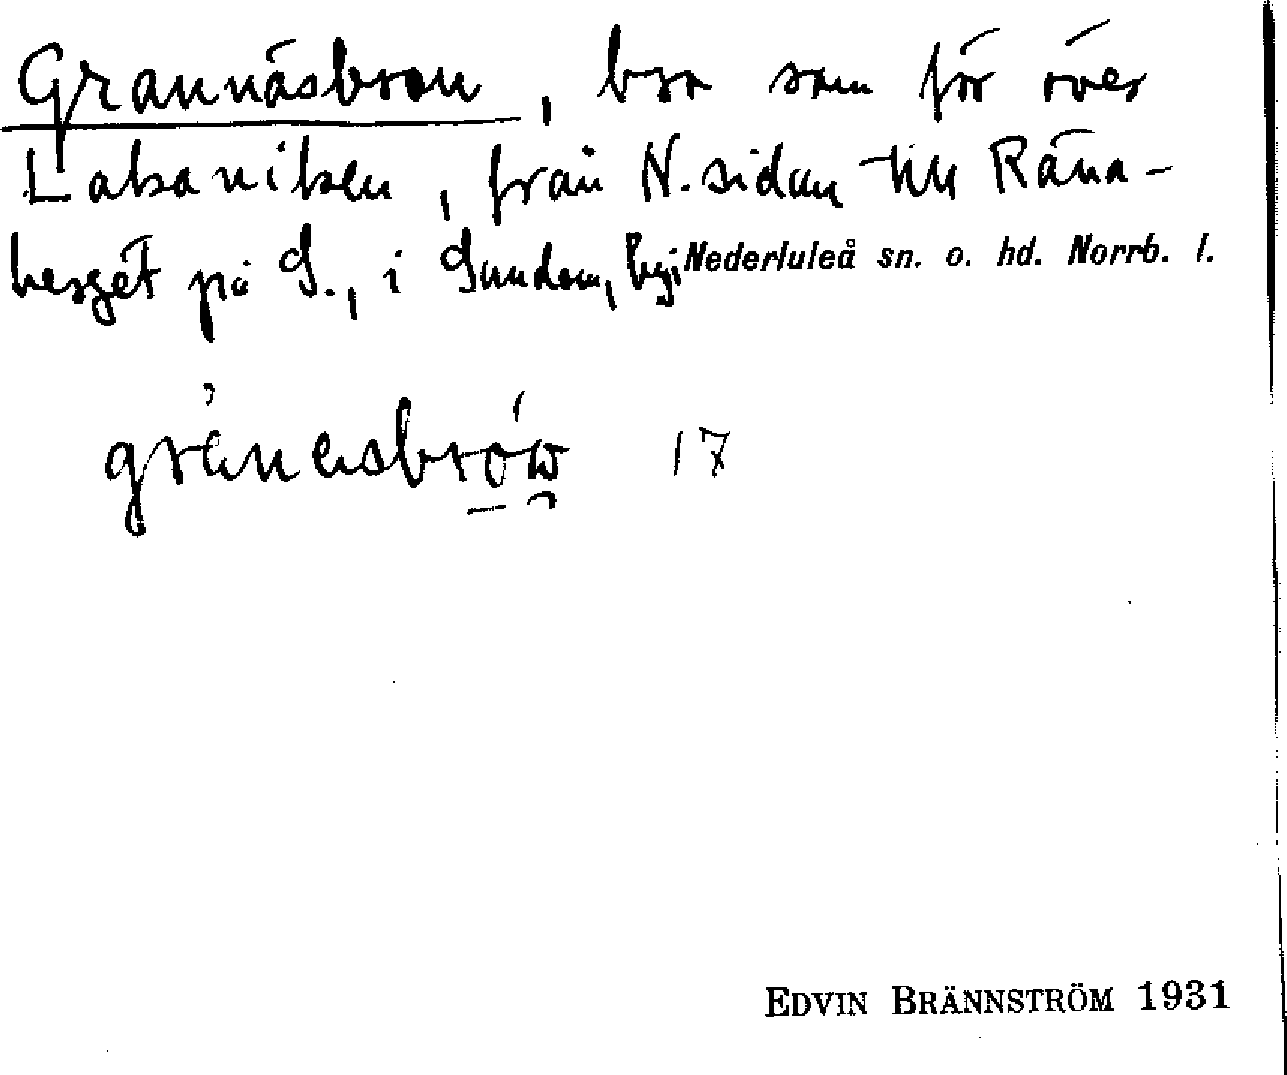 Grannäsbron, bro som för över
Laksaviken, från N. sidan till Räna-
berget på S., i Sundom, by i Nederluleå sn. o. hd. Norrb. l.
17
EDVIN BRÄNNSTRÖM 1931